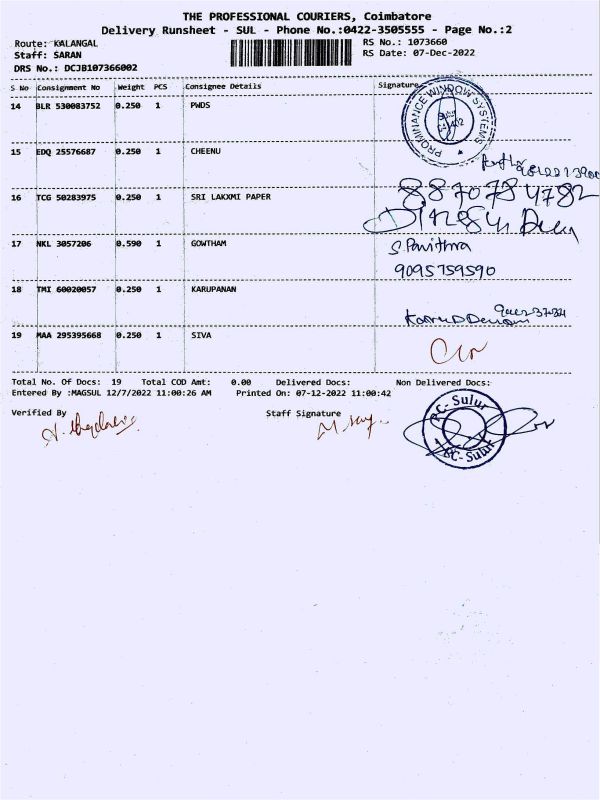 THE PROFESSIONAL COURIERS, Coimbatore
Delivery Runsheet - SUL - Phone No.:0422-3505555 - Page No.:2
Route: KALANGAL
RS No.: 1073660
Staff: SARAN
RS Date: 07-Dec-2022
DRS No.: DCJB107366002
S No Consignment No Weight PCS Consignee Details Signature
14 BLR 530083752 0.250 1 PWDS
PROMINANCE WINDOW SYSTEMS
15 EDQ 25576687 0.250 1 CHEENU
16 TCG 50283975 0.250 1 SRI LAKXMI PAPER
8870784782
17 NKL 3057206 0.590 1 GOWTHAM
S. Pavithra
9095759590
18 TMI 60020057 0.250 1 KARUPANAN
19 MAA 295395668 0.250 1 SIVA
Total No. Of Docs: 19 Total COD Amt: 0.00 Delivered Docs: Non Delivered Docs:
Entered By :MAGSUL 12/7/2022 11:00:26 AM Printed On: 07-12-2022 11:00:42
Verified By Staff Signature
PC- Sulur
PC- Sulur